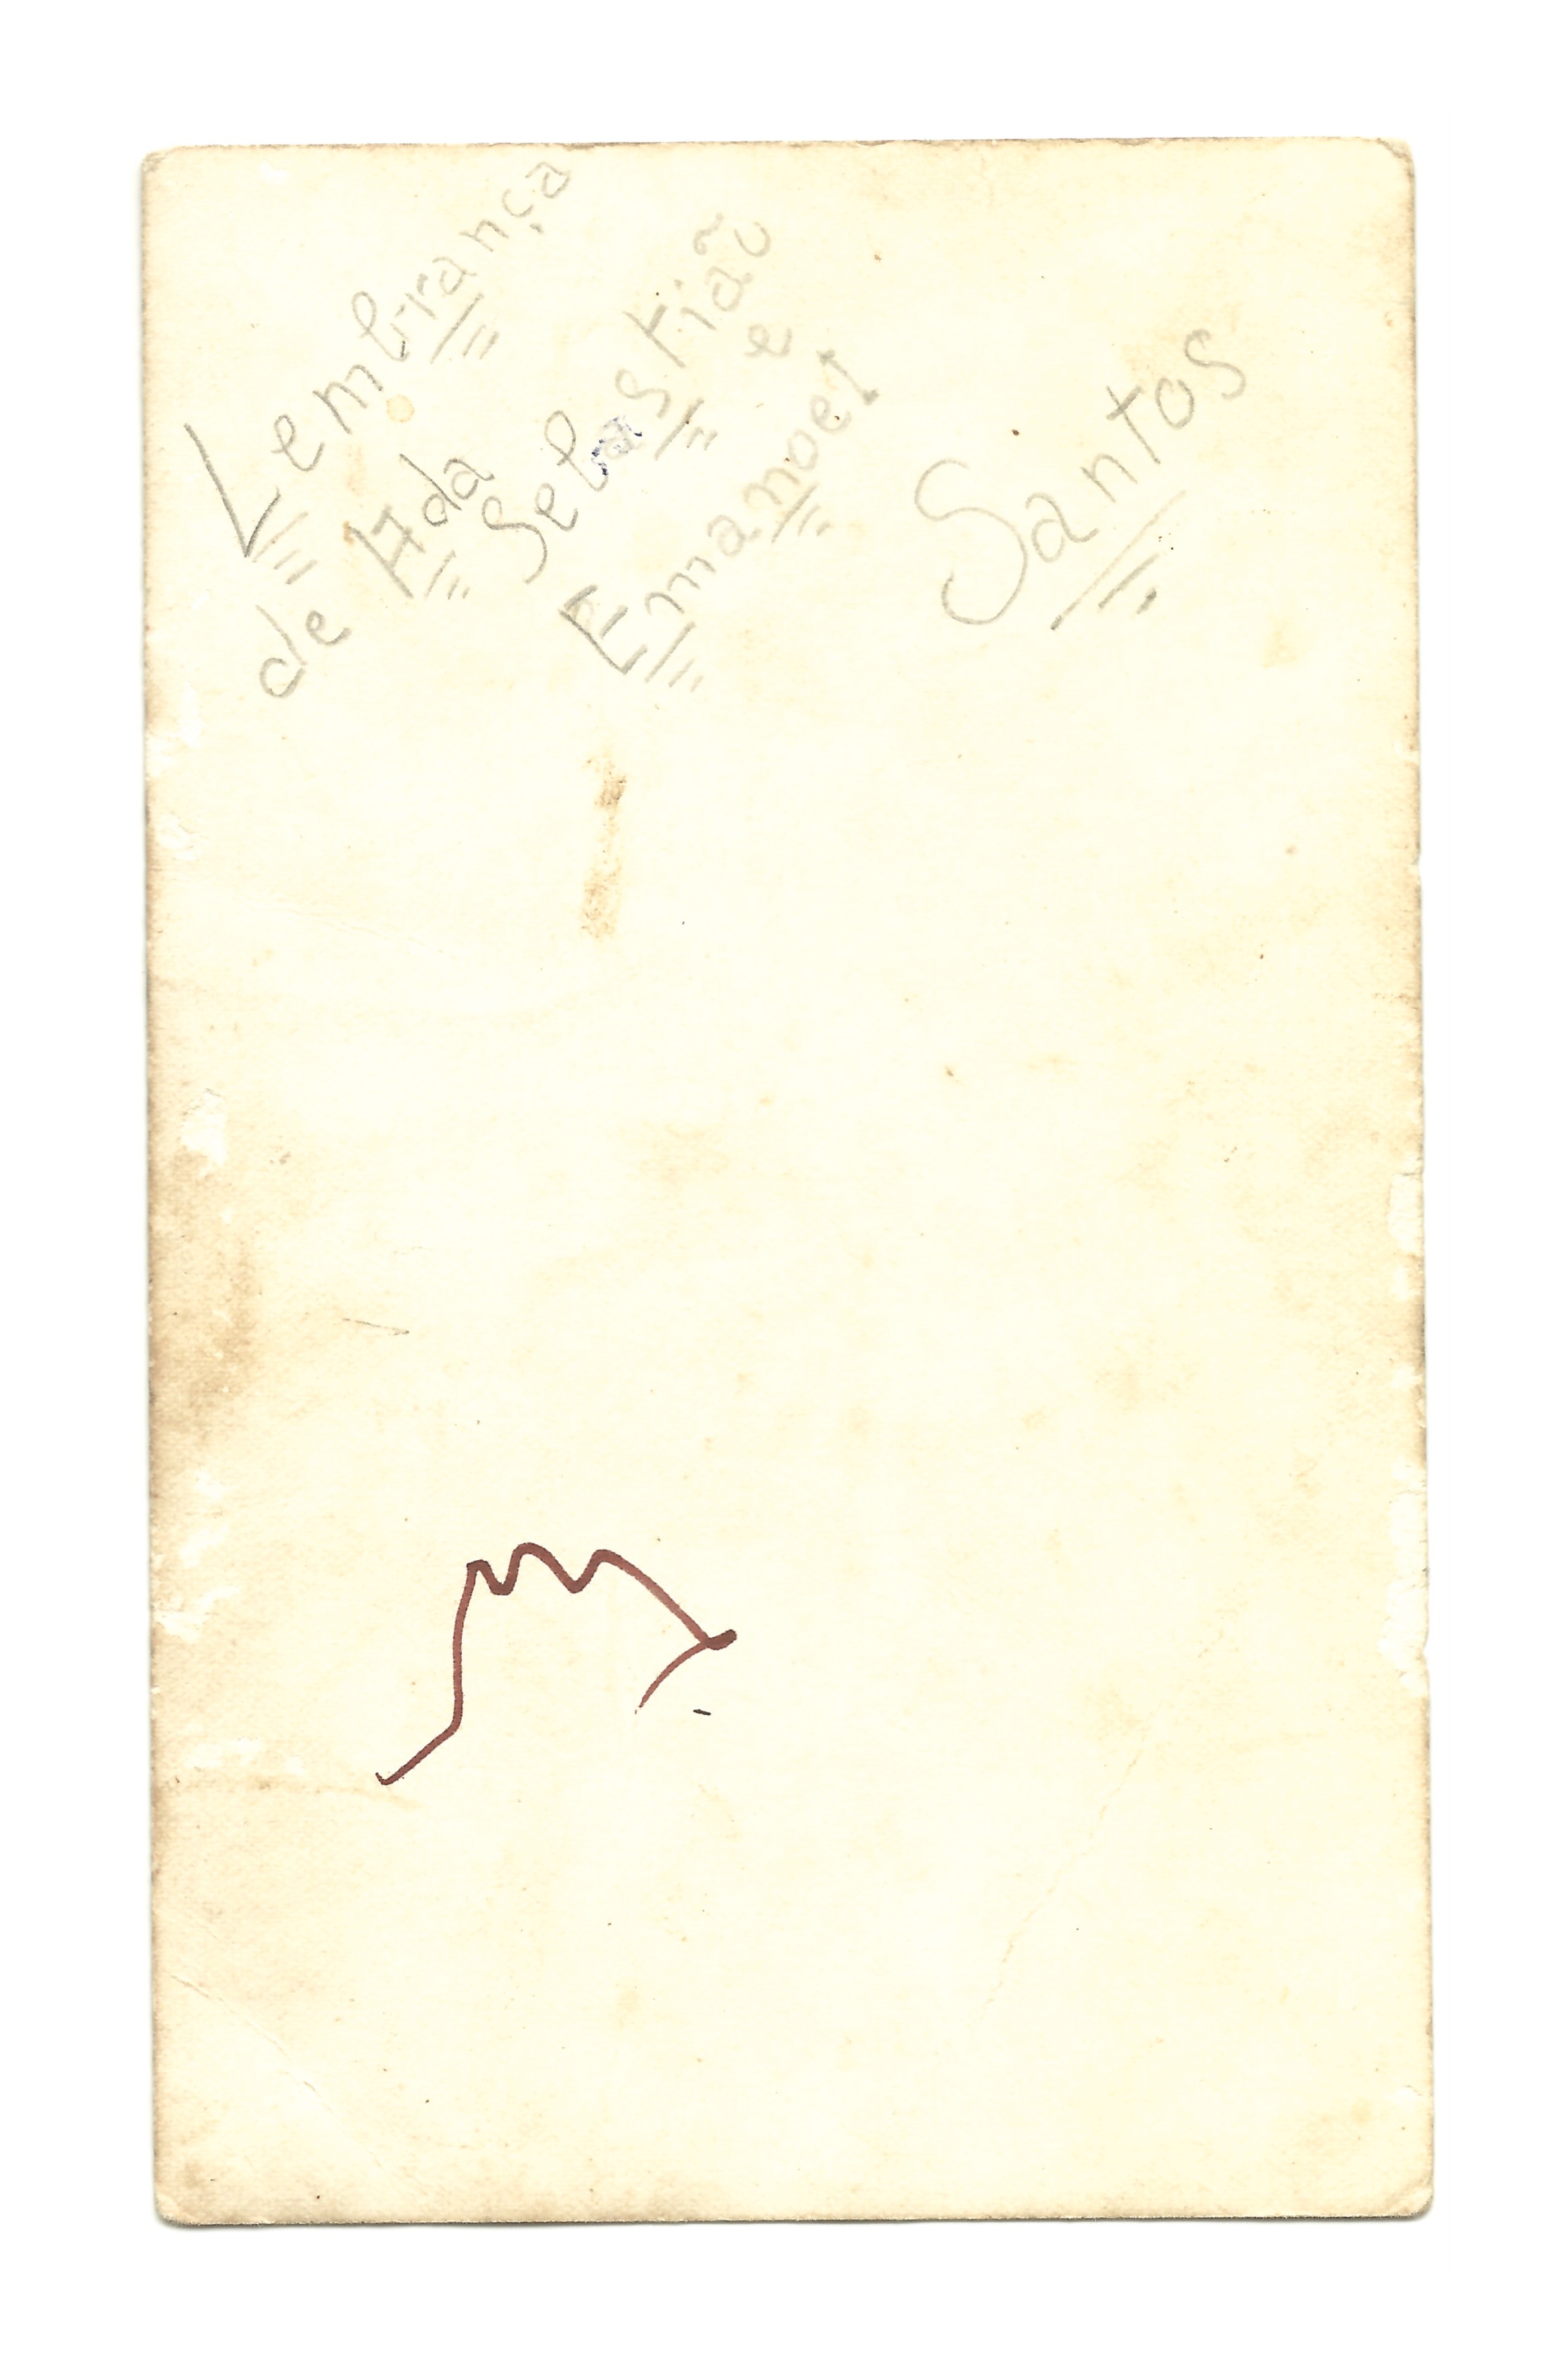 Lembrança
de Hda
Sebastião
e
Emanoel
Santos